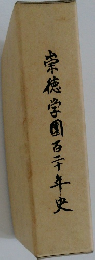 崇徳学園百二十年史